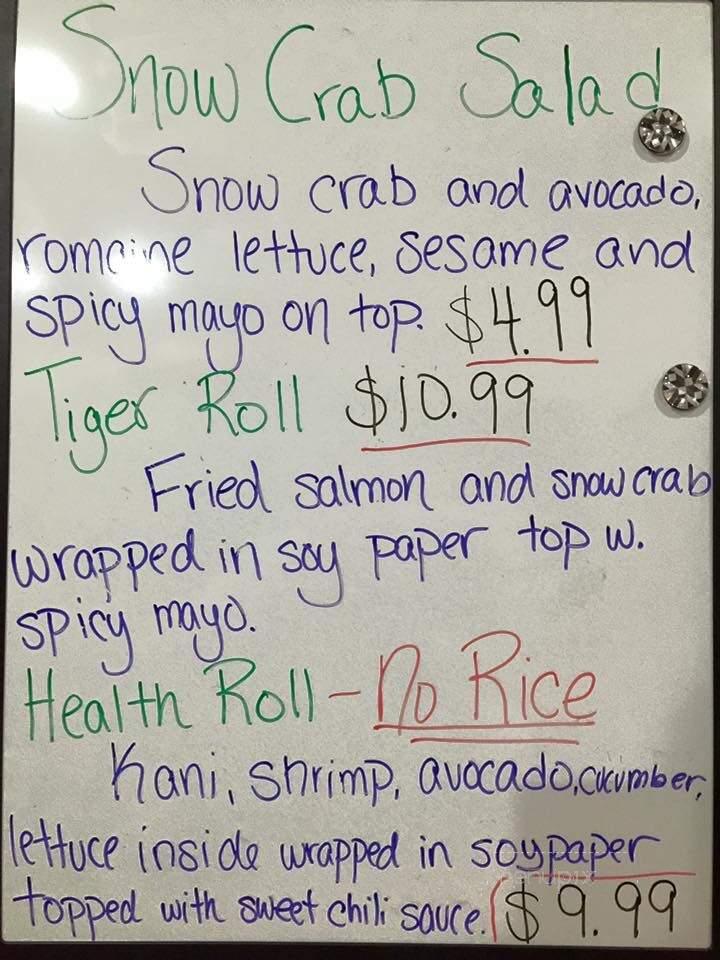 Snow Crab Salad
Snow crab and avocado,
romaine lettuce, sesame and
spicy mayo on top. $4.99
Tiger Roll $10.99
Fried salmon and snow crab
wrapped in soy paper top w.
spicy mayo.
Health Roll - No Rice
Kani, shrimp, avocado, cucumber,
lettuce inside wrapped in soy paper
topped with sweet chili sauce. $9.99